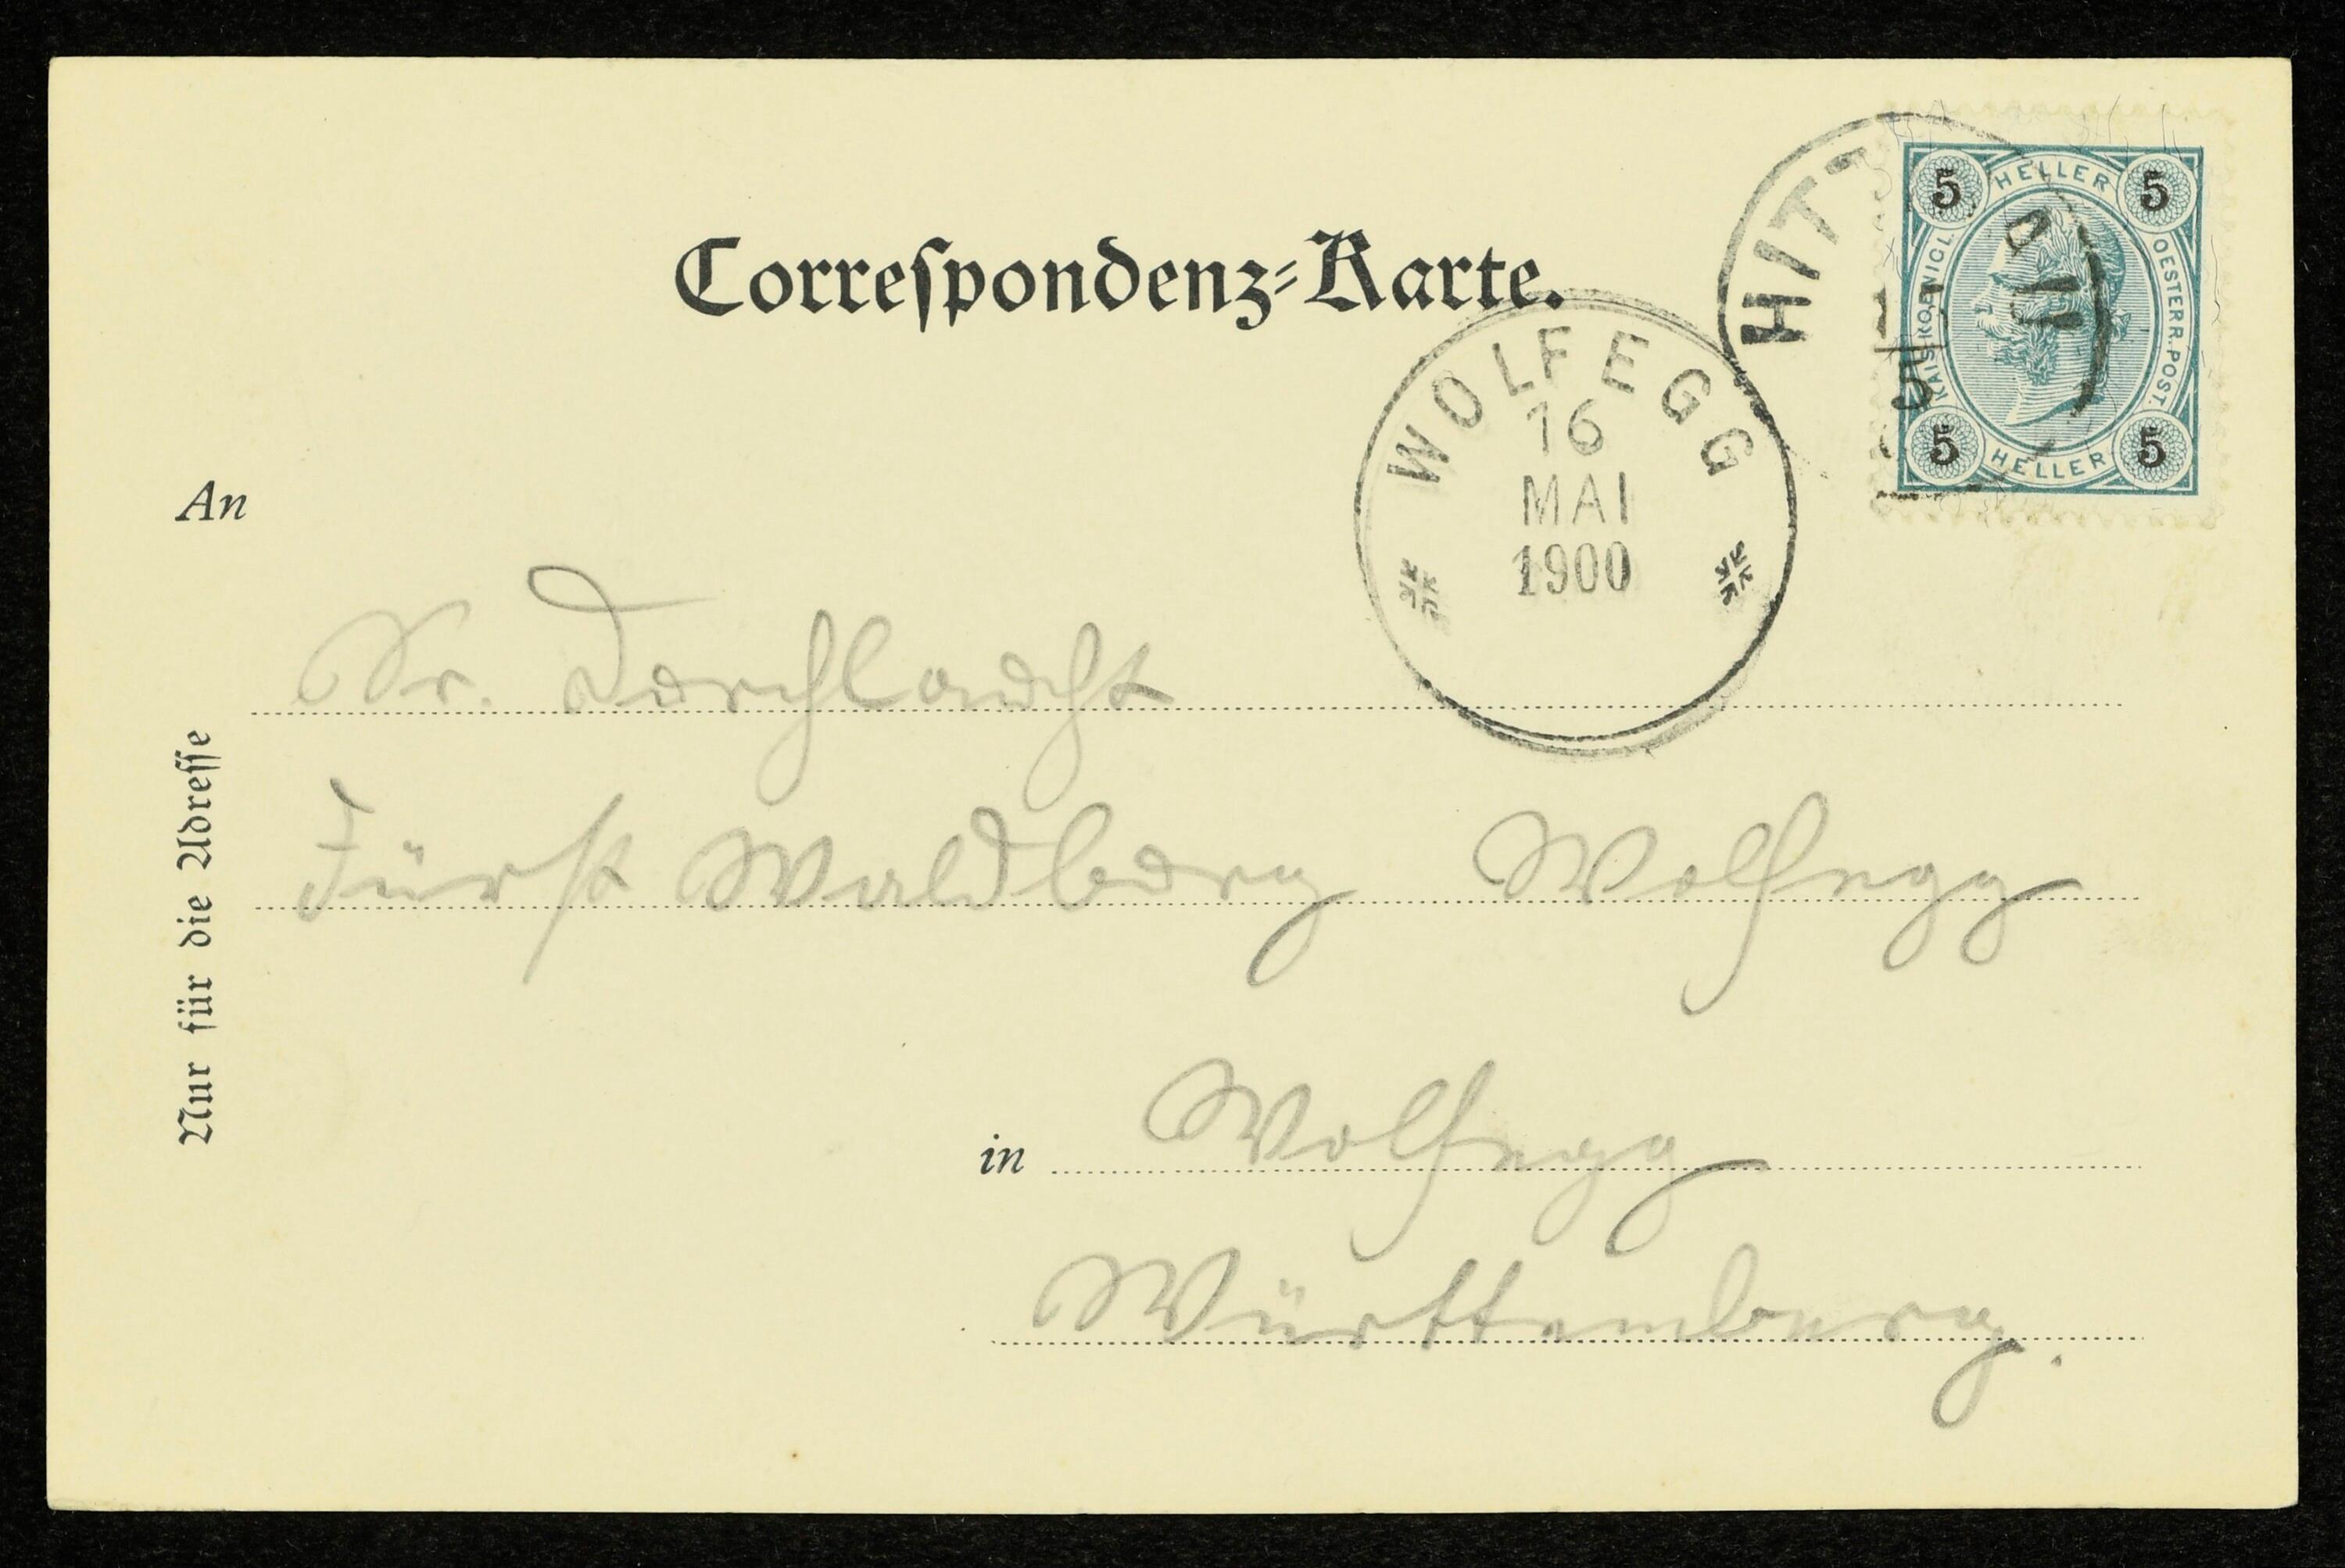 Correspondenz-Karte.
HELLER
5 5
KAIS. KOENIGL. OESTERR. POST.
5 5
HELLER
HITT
WOLFEGG
16
MAI
1900
An
Sr. Durchlaucht
Fürst Waldburg Wolfegg
in Wolfegg
Württemberg.
Nur für die Adresse